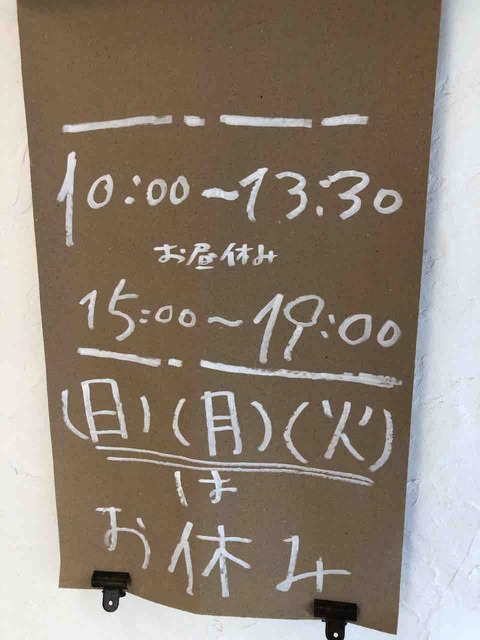 10:00～13:30
お昼休み
15:00～19:00
(日)(月)(火)
は
お休み